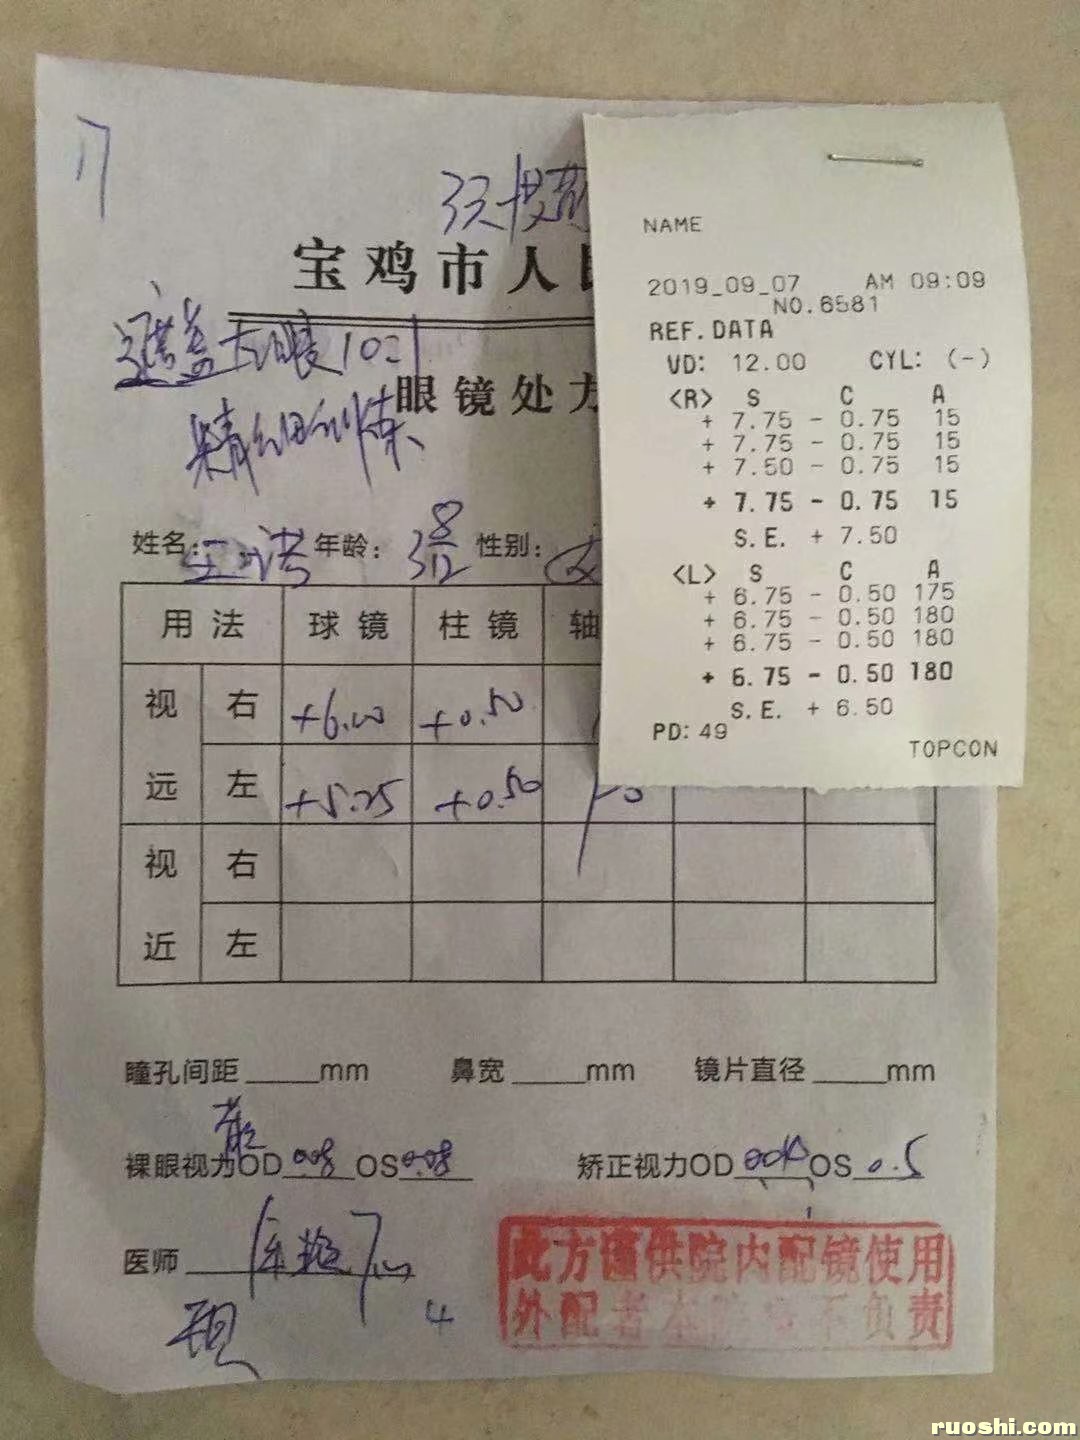 宝鸡市人民
遮盖右眼10:1
眼镜处方
精细训练
姓名: 年龄: 3 8/12 性别: 女
用法 球镜 柱镜 轴
视远 右 +6.00 +0.50
左 +5.25 +0.50
视近 右
左
瞳孔间距 mm 鼻宽 mm 镜片直径 mm
裸眼视力OD 0.08 OS 0.08 矫正视力OD OS 0.5
医师
4
此方谨供院内配镜使用
外配者本院 不负责
NAME
2019_09_07 AM 09:09
NO.6581
REF.DATA
VD: 12.00 CYL: (-)
<R> S C A
+ 7.75 - 0.75 15
+ 7.75 - 0.75 15
+ 7.50 - 0.75 15
+ 7.75 - 0.75 15
S.E. + 7.50
<L> S C A
+ 6.75 - 0.50 175
+ 6.75 - 0.50 180
+ 6.75 - 0.50 180
+ 6.75 - 0.50 180
S.E. + 6.50
PD: 49
TOPCON
ruoshi.com